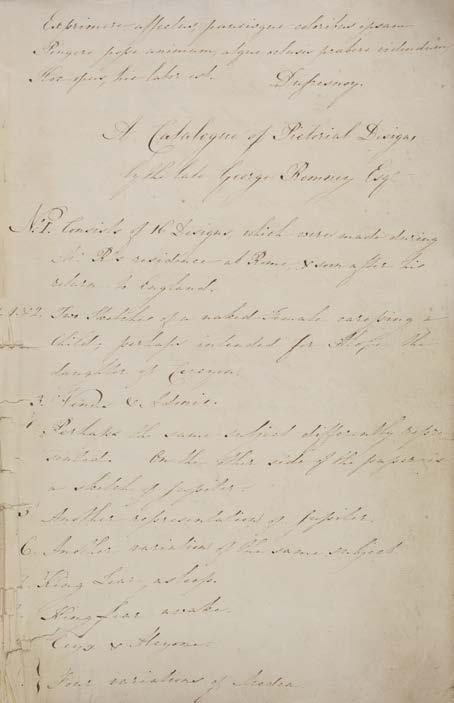 Exprimere affectus, paucisque coloribus ipsam
Pingere posse animum, atque oculis præbere videndum
Hoc opus, hic labor est. Dufresnoy.
A Catalogue of Pictorial Designs
by the late George Romney Esqr
No. I. Consists of 16 Designs which were made during
Mr R's residence at Rome, & soon after his
return to England.
1 & 2. Two Sketches of a naked Female caressing a
Child; perhaps intended for Alope the
daughter of Cercyon.
3. Venus & Adonis.
Perhaps the same subject differently repre-
sented. On the other side of the paper is
a sketch of Jupiter.
5 Another representation of Jupiter.
6. Another variation of the same subject
King Lear, asleep.
King Lear awake.
Ceyx & Alcyone.
Four variations of Medea